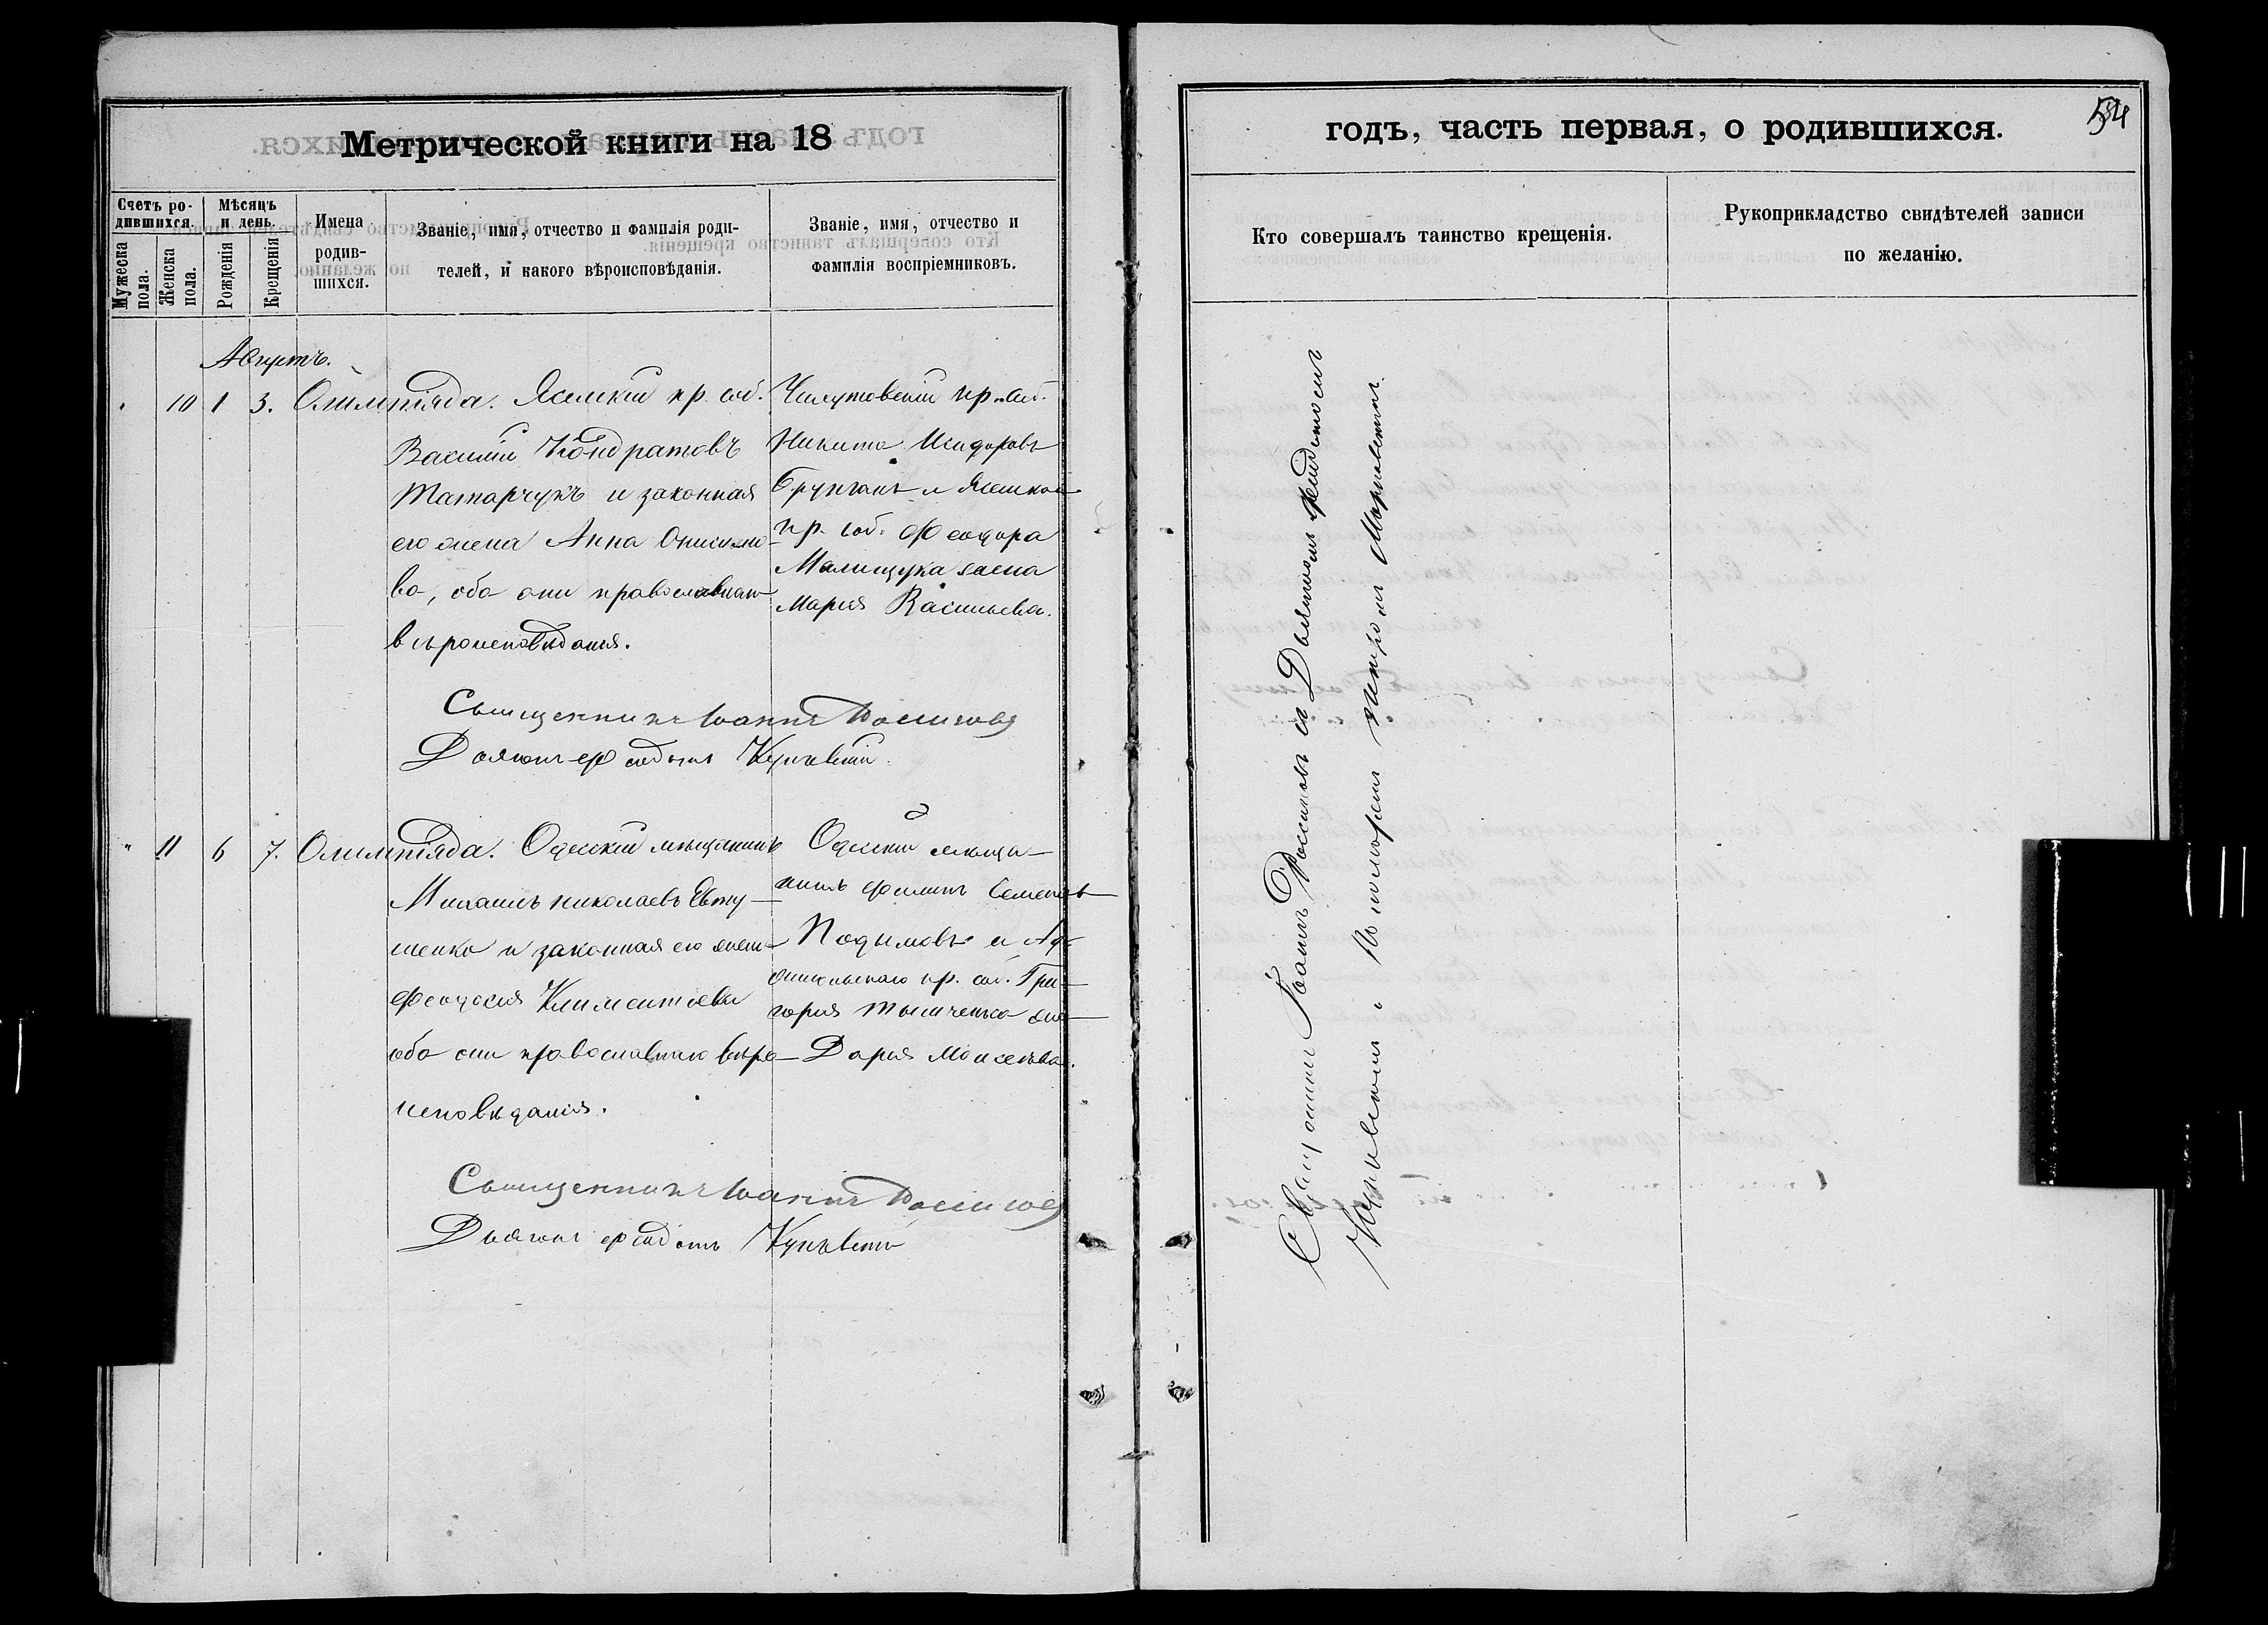 Метрической книги на 18
Счетъ ро-
дившихся.
Мужеска
пола.
Женска
пола.
Мѣсяцъ
и день.
Рожденія
Крещенія
Имена
родив-
шихся.
Званіе, имя, отчество и фамилія роди-
телей, и какого вѣроисповѣданія.
Званіе, имя, отчество и
фамилія воспріемниковъ.
Августъ.
" 10 1 3. Олимпіяда.
Ясскій кр. соб.
Василій Кондратовъ
Татарчукъ и законная
его жена Анна Онисимо-
ва, оба они православнаго
вѣроисповѣданія.
кр. соб.
Никита Исидоровъ
и
кр. соб. Феодора
Малищука жена
Марія Васильева.
Священникъ Іоаннъ
Дьяконъ Федотъ
" 11 6 7. Олимпіяда.
Одесскій мѣщанинъ
Михаилъ Николаевъ Евту-
шенко и законная его жена
Феодосія Климентіева
оба они православнаго вѣро-
исповѣданія.
Одесскій мѣща-
нинъ Филипъ Семеновъ
и
кр. соб. Гри-
горія
Дарія Моисеева.
Священникъ Іоаннъ
Дьяконъ Федотъ
годъ, часть первая, о родившихся.
54
Кто совершалъ таинство крещенія.
Рукоприкладство свидѣтелей записи
по желанію.
Священникъ Іоаннъ съ Дьякономъ Федотомъ
и Псаломщикомъ Петромъ